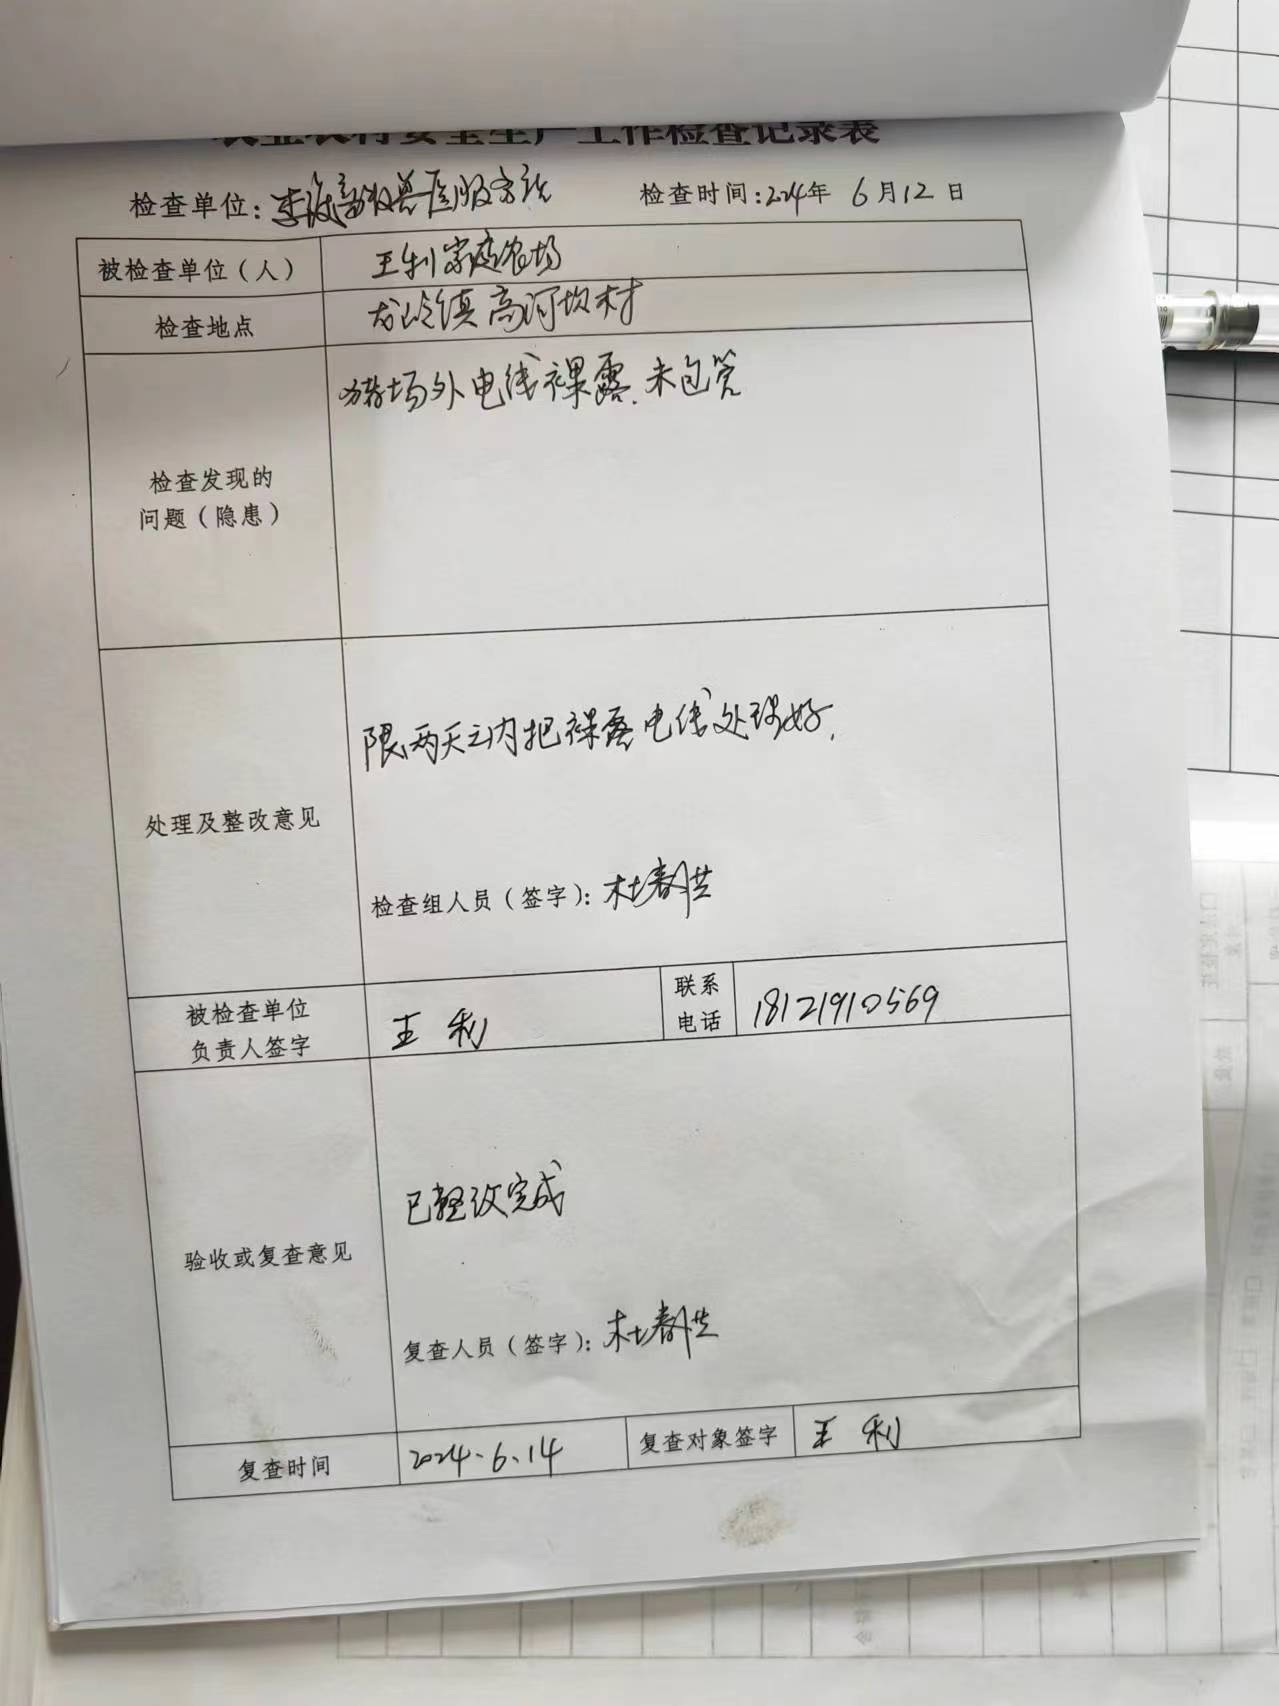 农业农村安全生产工作检查记录表
检查单位: 牧兽医服务站 检查时间:2024年 6月12日
被检查单位(人) 王利家庭农场
检查地点 龙岭镇高河坎村
猪场外电线裸露.未包管
检查发现的
问题(隐患)
限两天之内把裸露电线处理好.
处理及整改意见
检查组人员(签字): 杜
被检查单位
负责人签字 王利
联系
电话 18121910569
已整改完成
验收或复查意见
复查人员(签字): 杜
复查时间 2024.6.14 复查对象签字 王利